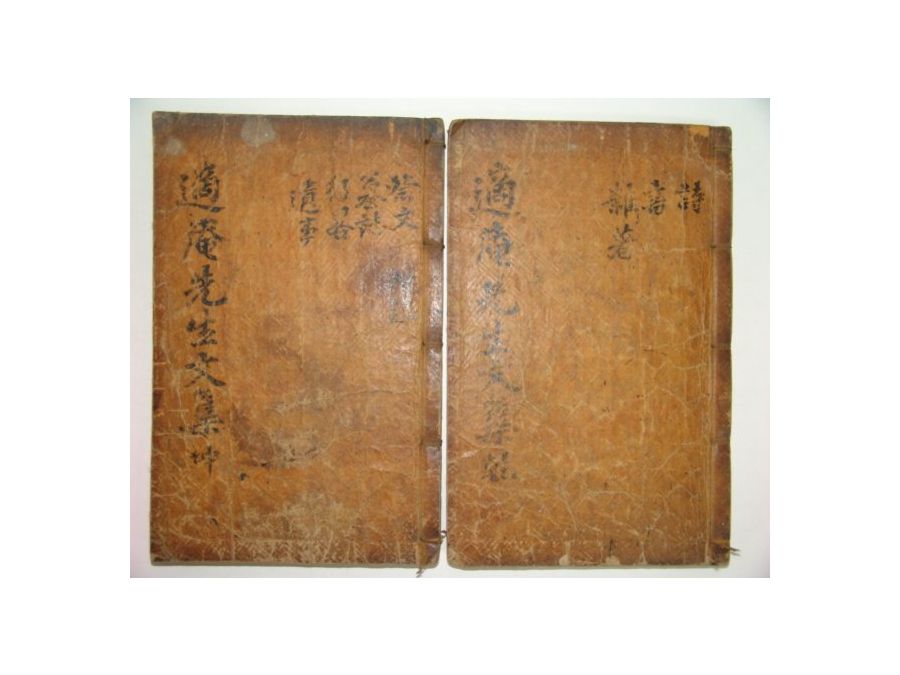 詩
書
雜著
適庵先生文集 乾
祭文
墓誌
行狀
遺事
適庵先生文集 坤